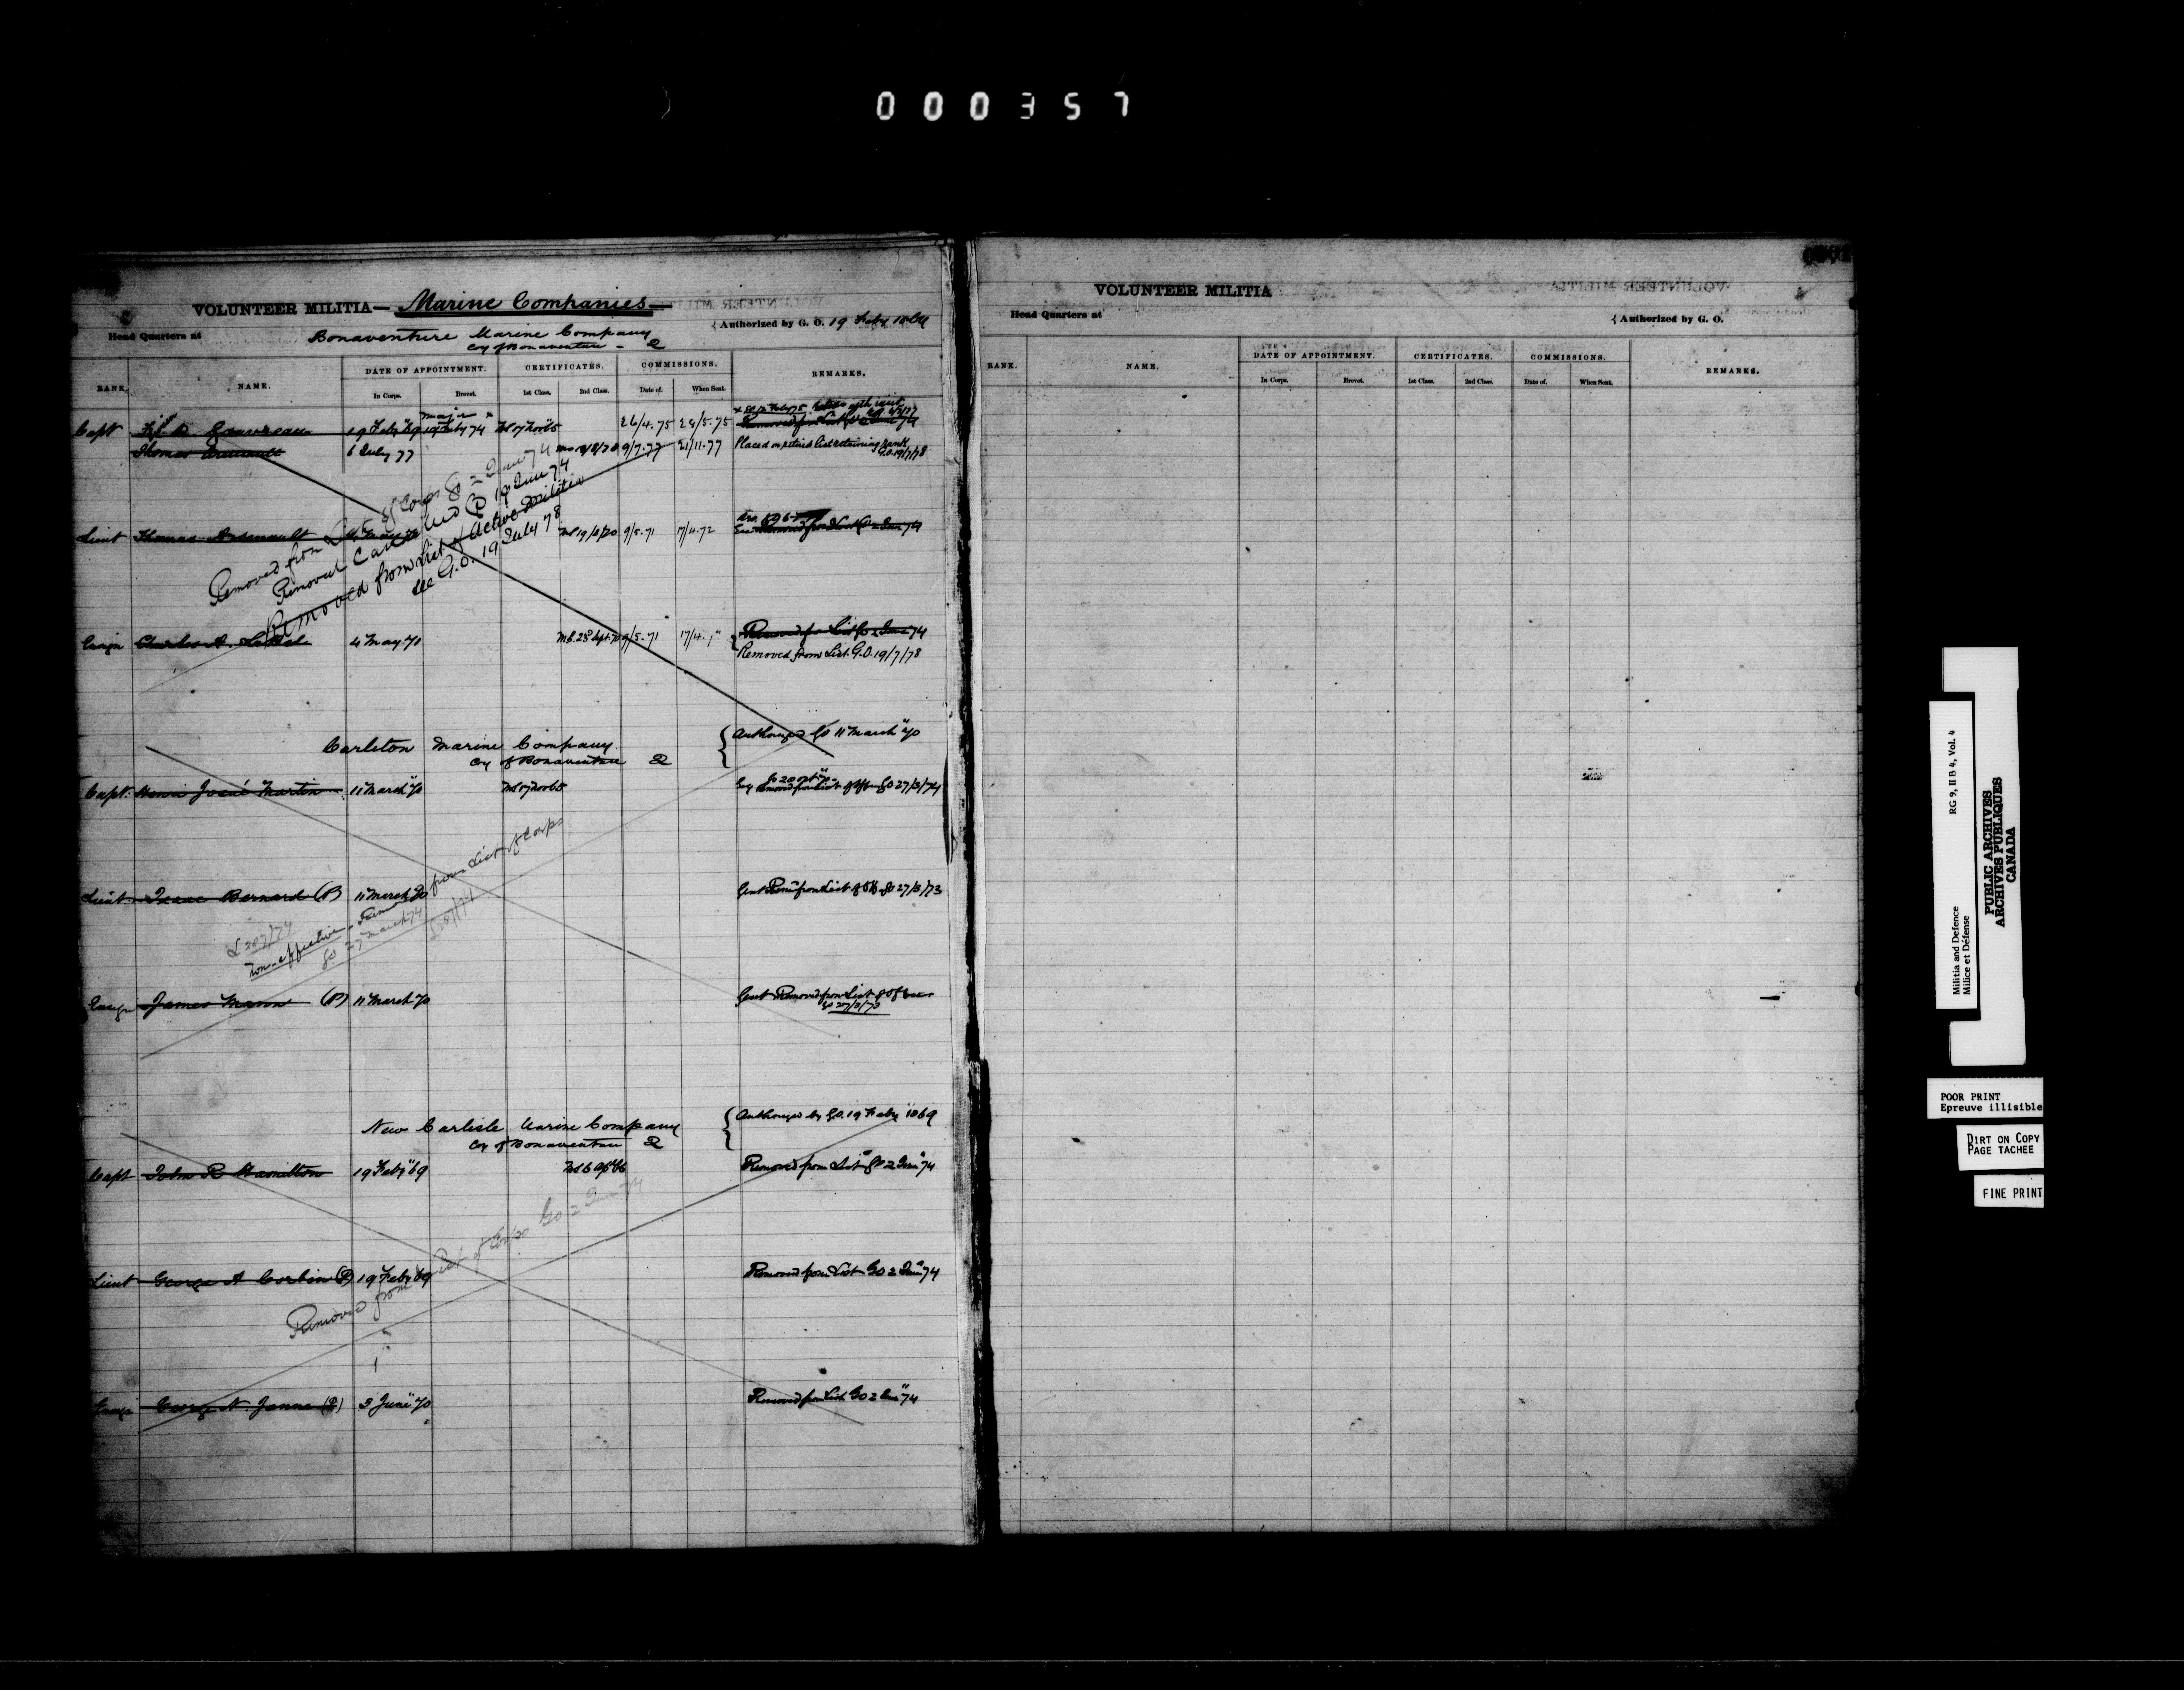 000357
VOLUNTEER MILITIA— Marine Companies—
Head Quarters at Bonaventure Marine Company {Authorized by G. O. 19 Feby 1869
Coy of Bonaventure - Q
RANK. NAME. DATE OF APPOINTMENT. CERTIFICATES. COMMISSIONS. REMARKS.
In Corps. Brevet. 1st Class. 2nd Class. Date of. When Sent.
Major
Capt Gauvreau 19 Feby "69 19 Feby 74 MS 17 Nov 65 26/4.75 28/5.75 Removed from List
Thomas Arsenault 6 July 77 9/7.77 21/11.77 Placed on retired list retaining rank
G.O. 19/7/78
Removed from List of Corps GO 2 June 74
Removal Cancelled GO 19 June 74
Removed from List of Active Militia
see G.O. 19 July 78
Lieut Thomas Arsenault MS 19/8/70 9/5.71 17/4.72 Removed from List GO 2 June 74
Ensign Charles A. LeBel 4 May 70 MS. 28 Sept 70 9/5.71 17/4. " Removed from List GO 2 June 74
Removed from List. G.O. 19/7/78
Carleton Marine Company { Authorized GO 11 March "70
Coy of Bonaventure Q
Capt. Henri Josué Martin 11 March "70 MS 17 Nov 65 removed from List of Off GO 27/3/74
Lieut Isaac Bernard (P) 11 March 70 Gent Rem from List of Off GO 27/3/73
L 207/74
Non-effective - Removed from List of Corps
GO 27 March 74
Ensign James Mann (P) 11 March 70 Gent Removed from List of Officers
GO 27/3/73
New Carlisle Marine Company { Authorized by G.O. 19 Feby 1869
Coy of Bonaventure Q
Capt John R Hamilton 19 Feby "69 Removed from List GO 2 June "74
Removed from List of Corps GO 2 June 74
Lieut George A Corbin (P) 19 Feby 69 Removed from List GO 2 June "74
Ensign George N. Janne (P) 3 June "70 Removed from List GO 2 June "74
VOLUNTEER MILITIA
Head Quarters at {Authorized by G. O.
RANK. NAME. DATE OF APPOINTMENT. CERTIFICATES. COMMISSIONS. REMARKS.
In Corps. Brevet. 1st Class. 2nd Class. Date of. When Sent.
Militia and Defence RG 9, II B 4, Vol. 4
Milice et Défense
PUBLIC ARCHIVES
ARCHIVES PUBLIQUES
CANADA
POOR PRINT
Epreuve illisible
DIRT ON COPY
PAGE TACHEE
FINE PRINT